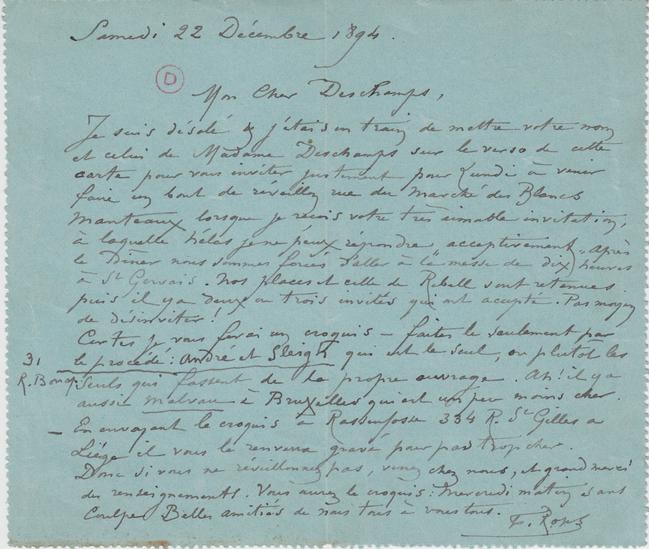 Samedi 22 Décembre 1894.
D
Mon Cher Deschamps,
Je suis désolé & j'étais en train de mettre votre nom
et celui de Madame Deschamps sur le verso de cette
carte pour vous inviter justement pour Lundi à venir
faire un bout de reveillon rue du Marché des Blancs
Manteaux lorsque je reçois votre très aimable invitation,
à laquelle hélas je ne peux répondre acceptivement. Après
le Dîner nous sommes forcés d'aller à la "messe de dix" heures
à St Gervais. Nos places et celle de Rebell sont retenues
puis il y a deux ou trois invités qui ont accepté. Pas moyen
de désinviter!
Certes je vous ferai un croquis – faites le seulement par
le procédé: André et Sleigh qui est le seul, ou plutôt les
31
R. Bonap.
seuls qui fassent de la propre ouvrage. Ah! il y a
aussi Malvaux à Bruxelles qui est un peu moins cher.
– En envoyant le croquis à Rassenfosse 334 R. St Gilles à
Liège il vous le renverra gravé pour pas trop cher.
Donc si vous ne reveillonnez pas, venez chez nous, et grand merci
des renseignements. Vous aurez le croquis: Mercredi matin sans
Coulpe. Belles amitiés de nous tous à vous tous.
F. Rops